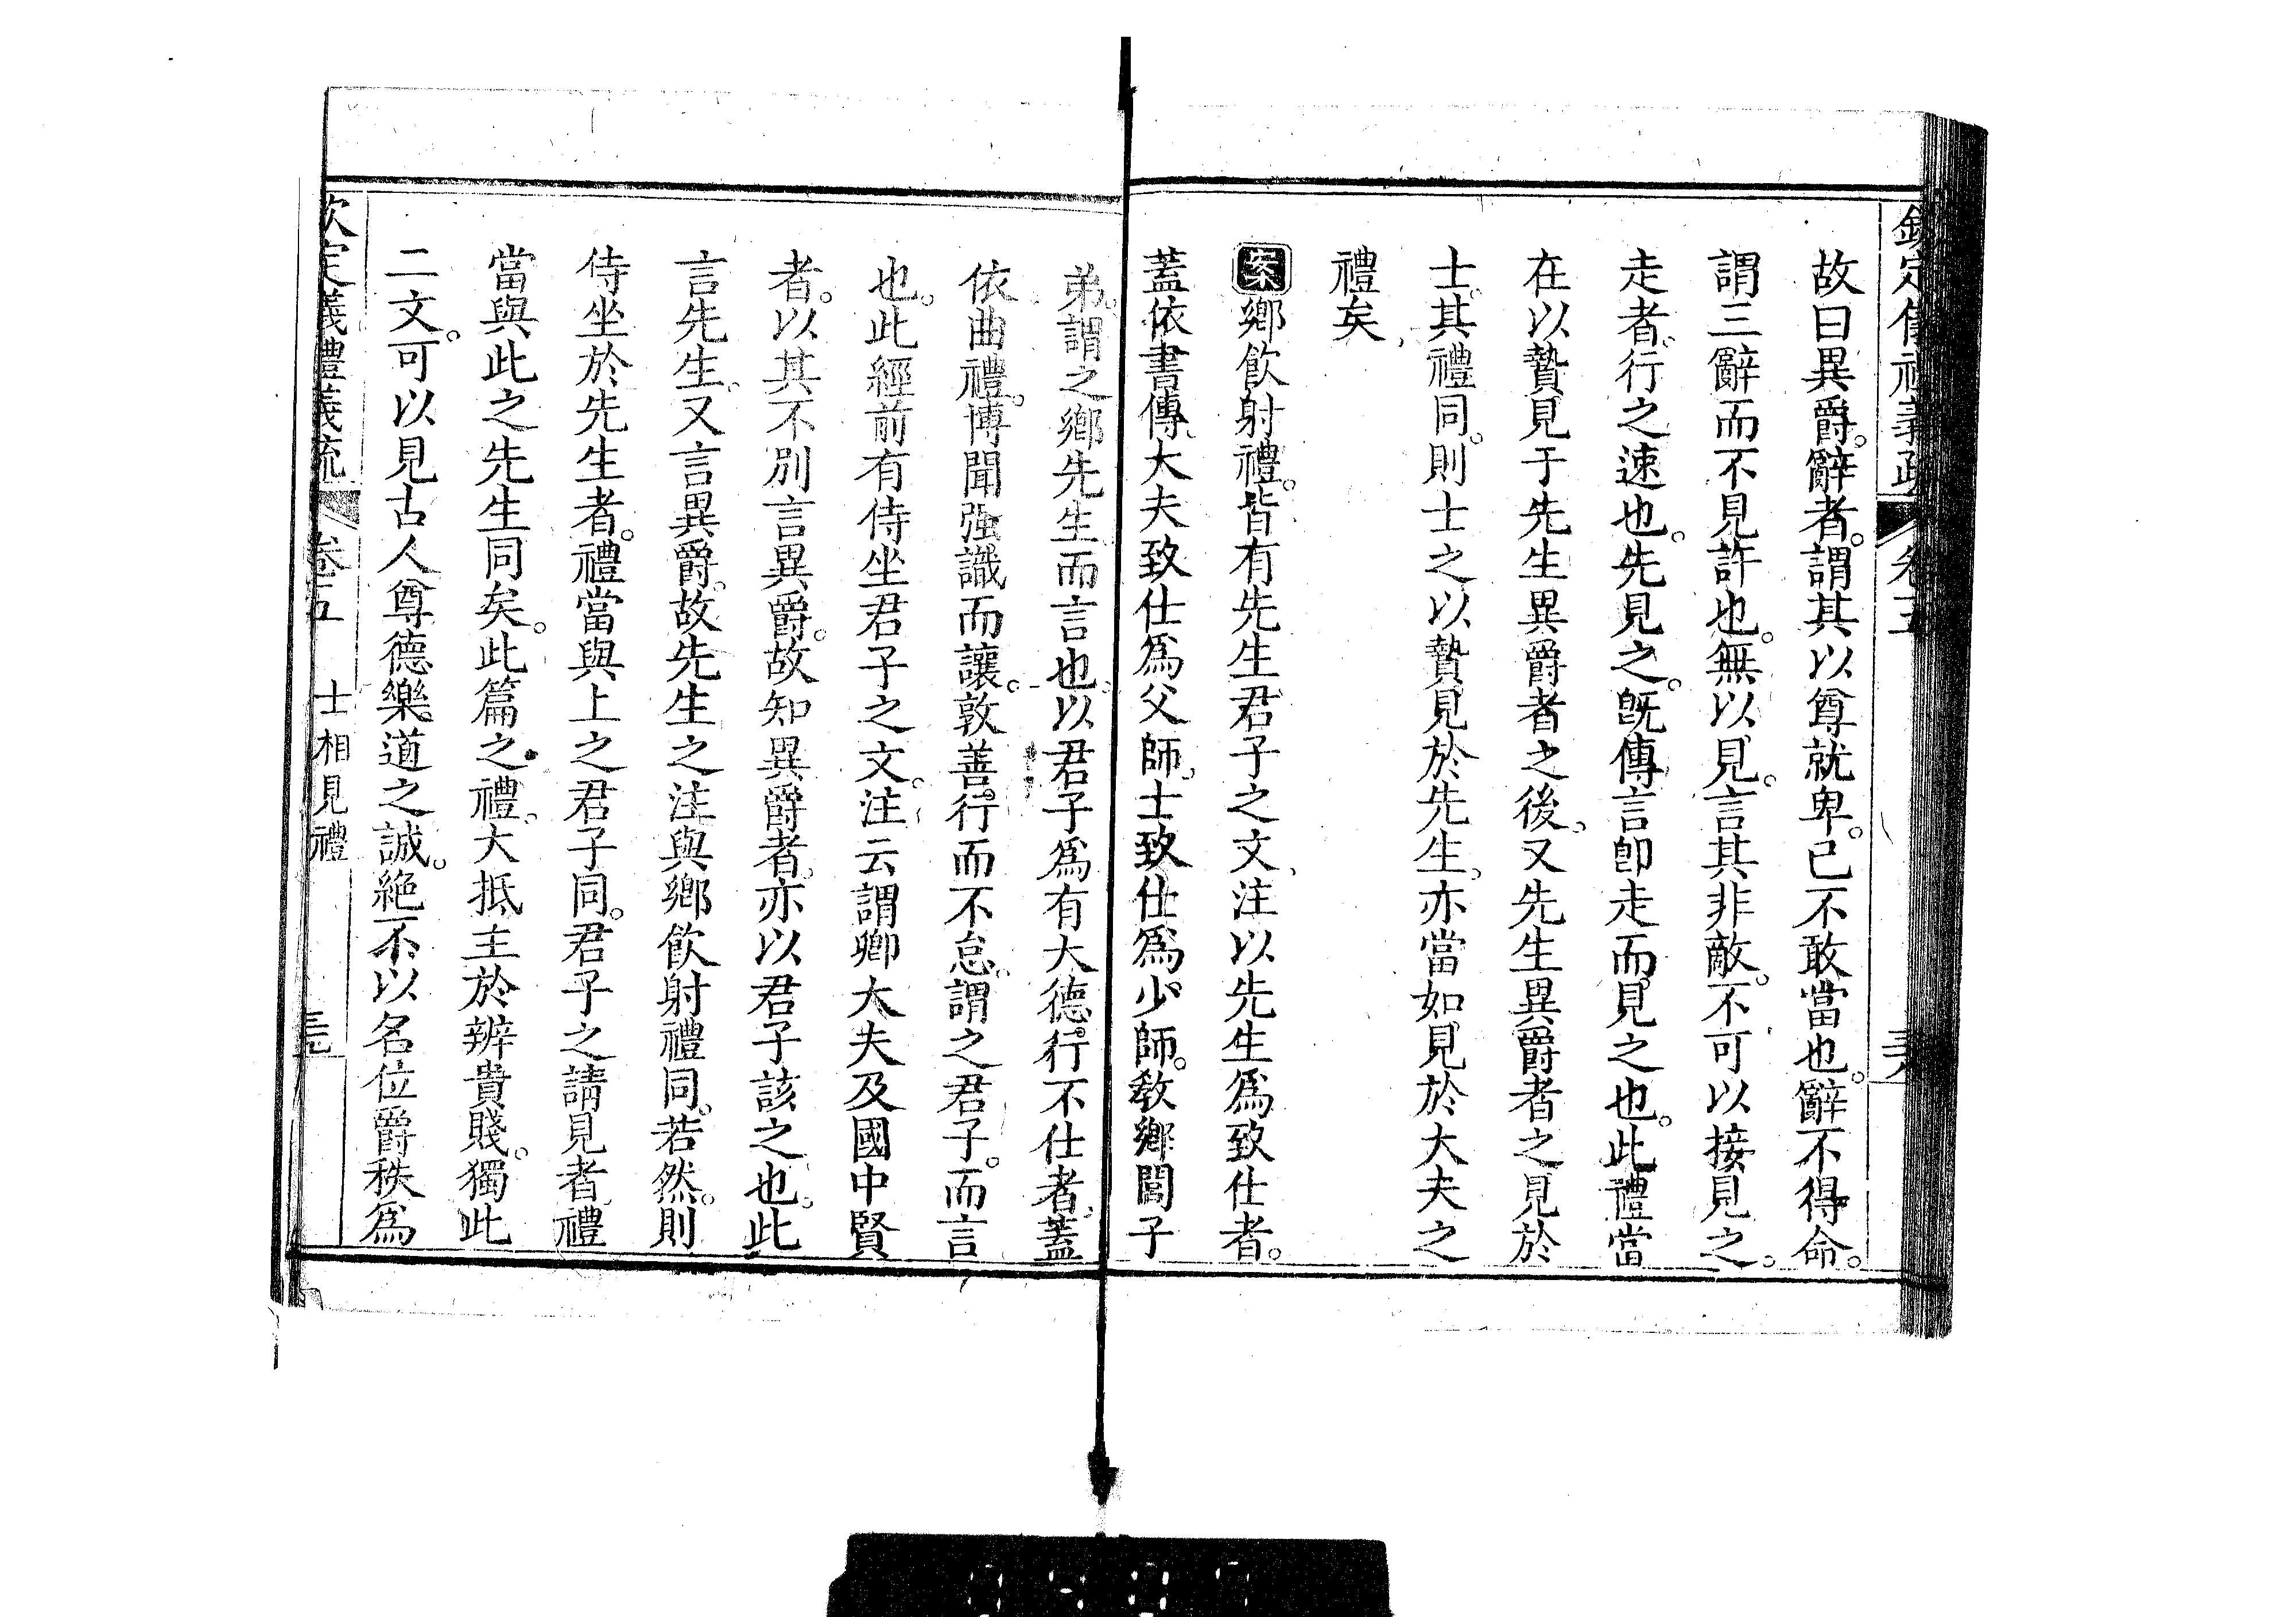 欽定儀禮義疏 卷五
故曰異爵。辭者。謂其以尊就卑。己不敢當也。辭不得命。
謂三辭而不見許也。無以見。言其非敵。不可以接見之。
走者。行之速也。先見之。既傳言卽走而見之也。此禮當
在以贄見于先生異爵者之後。又先生異爵者之見於
士。其禮同。則士之以贄見於先生。亦當如見於大夫之
禮矣
案鄉飲射禮。皆有先生君子之文、注以先生爲致仕者。
蓋依書傳。大夫致仕爲父師。士致仕爲少師。敎鄉閭子
弟。謂之鄉先生而言也。以君子爲有大德行不仕者。蓋
依曲禮。博聞强識而讓。敦善行而不怠。謂之君子。而言
也。此經前有侍坐君子之文。注云謂卿大夫及國中賢
者。以其不別言異爵。故知異爵者。亦以君子該之也。此
言先生。又言異爵。故先生之注與鄉飲射禮同。若然。則
侍坐於先生者。禮當與上之君子同。君子之請見者。禮
當與此之先生同矣。此篇之禮。大抵主於辨貴賤。獨此
二文。可以見古人尊德樂道之誠。絕不以名位爵秩爲
欽定義禮義疏 卷五 士相見禮